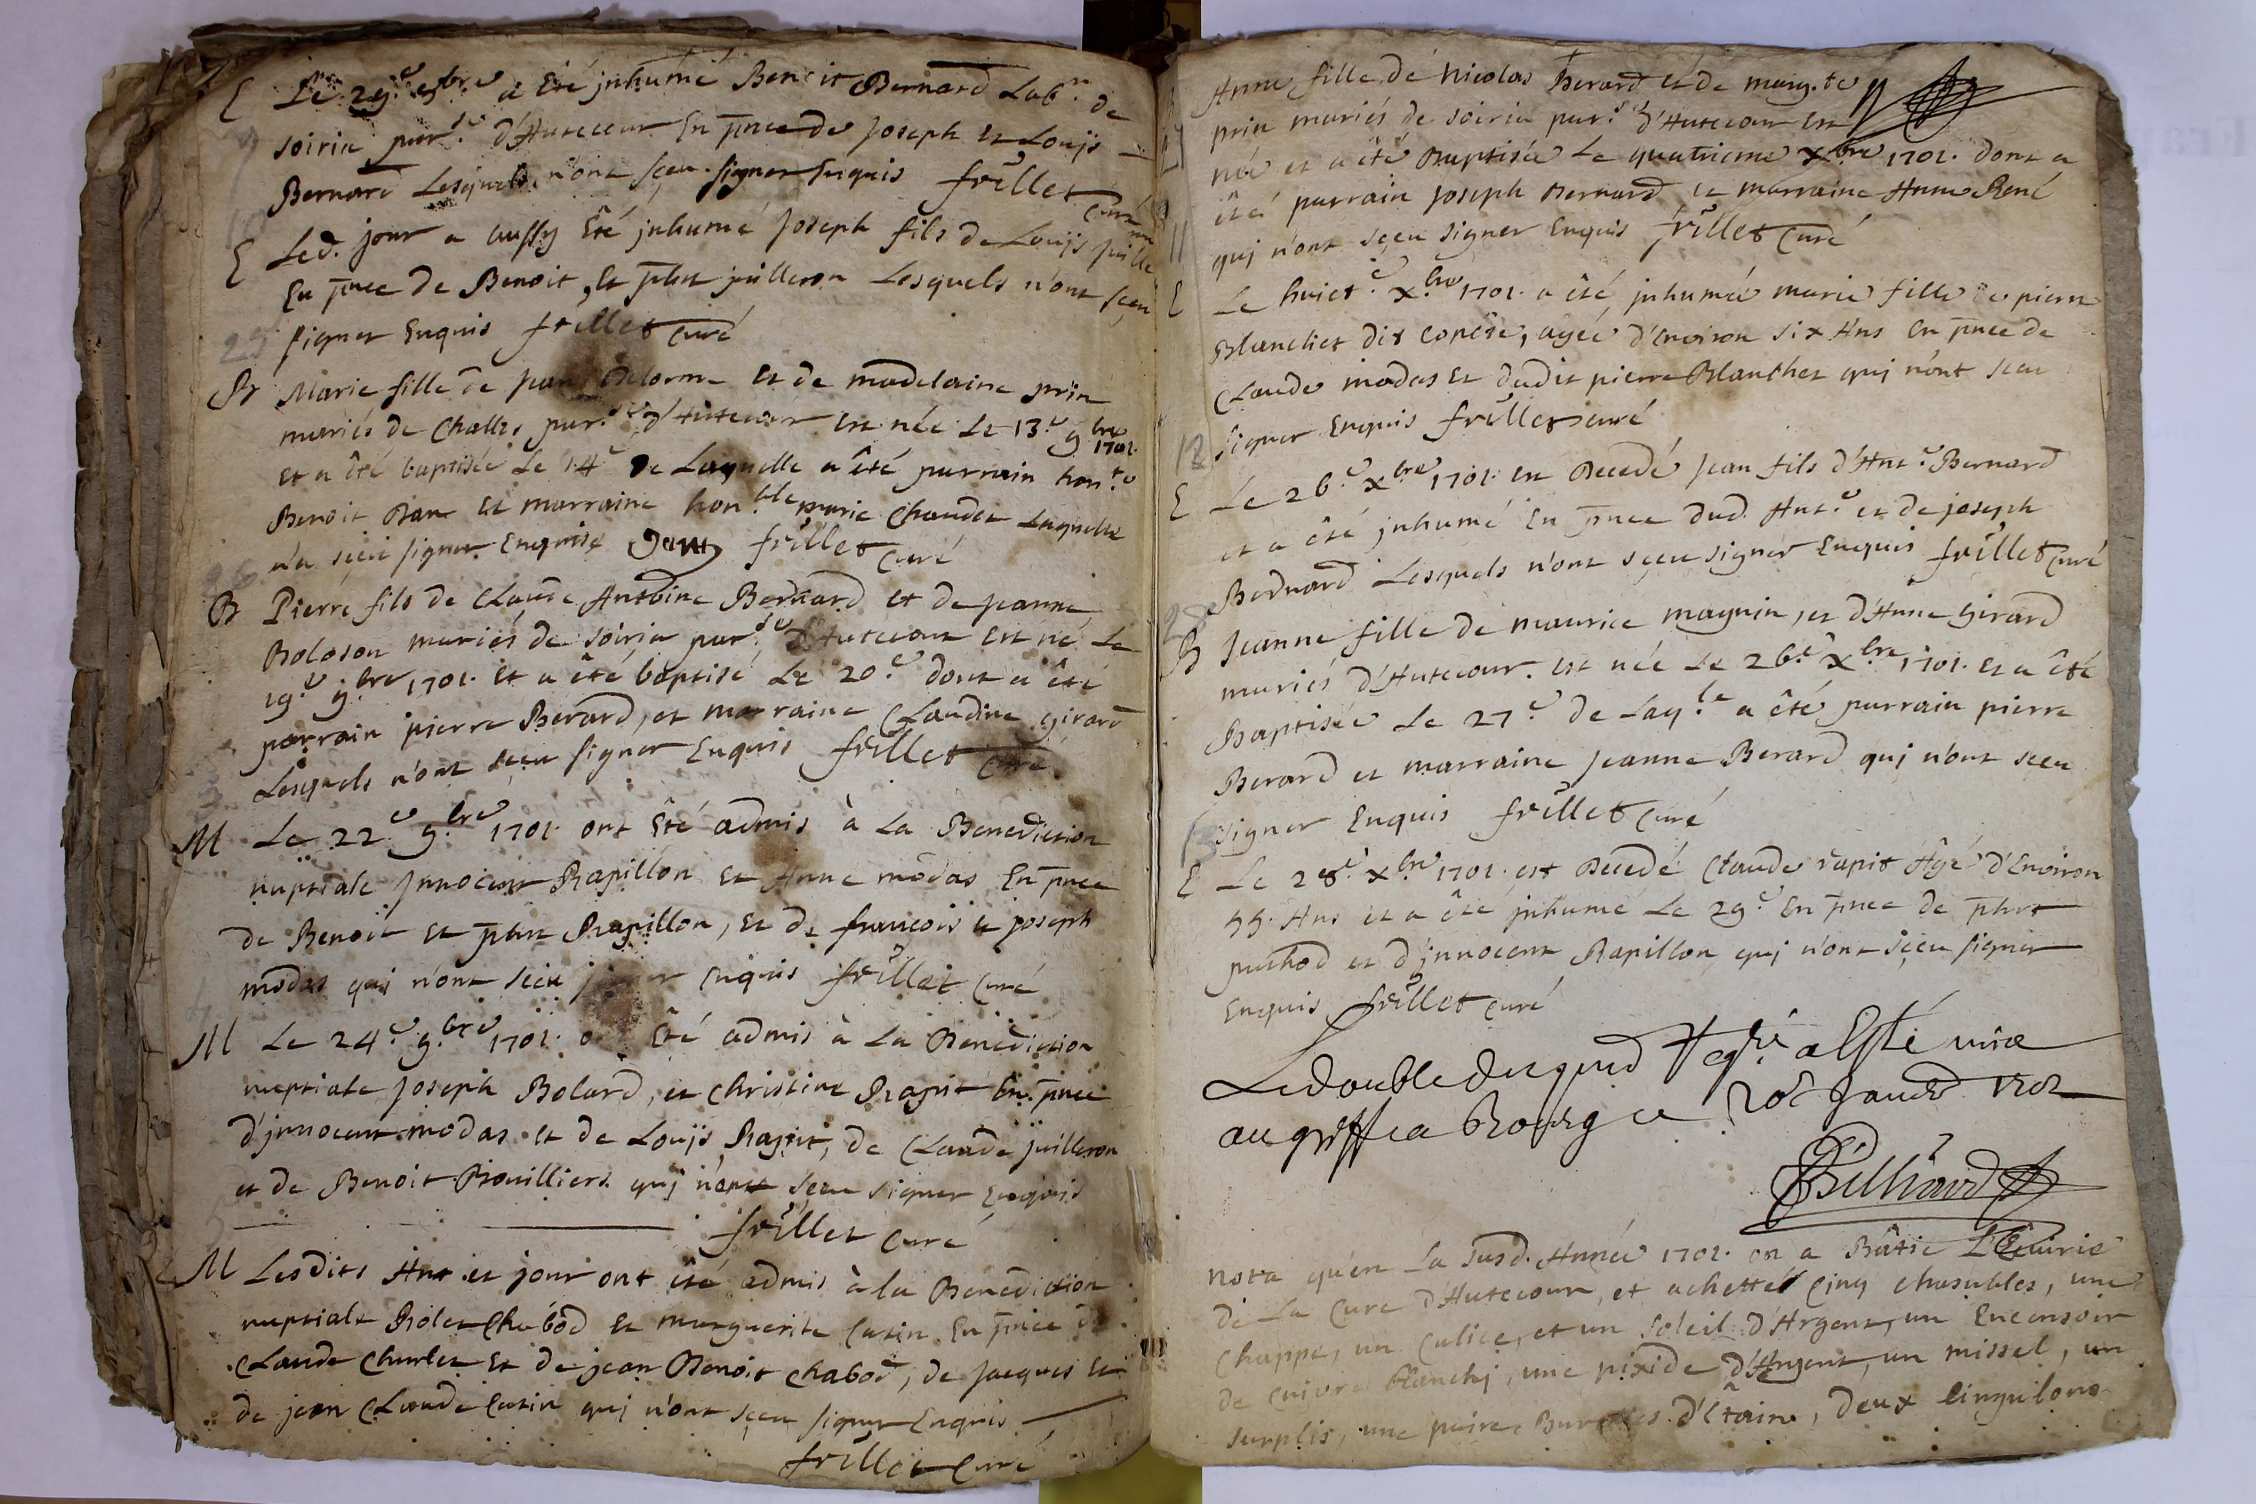 E Le 29.e 9bre a Eté jnhumé Benoit Bernard Lab.r de
soiria par.se d'Hutecour En pnce de joseph et Louijs
Bernard Lesquels n'ont sçeu signer Enquis frillet Curé
E Led. jour a aussy Eté jnhumé joseph fils de Louijs juille
En pnce de Benoit, Et phut juilleron Lesquels n'ont sçeu
signer Enquis frillet Curé
B Marie fille de jean Delorme et de madelaine prin
mariés de Challes par.se d'Hutecour Est née Le 13.e 9bre 1701.
et a êté baptisée Le 14.e De Laquelle a êté parrain hon.te
Benoit et marraine hon.ble marie Chaudet Laquelle
n'a sçeu signer Enquise frillet Curé
B Pierre fils de Claude Anthoine Bernard et de jeanne
Boloson mariés de soiria par.se d'Hutecour Est né Le
19.e 9.bre 1701. Et a êté baptisé Le 20.e dont a êté
parrain pierre Berard, et marraine Claudine girard
Lesquels n'ont sçeu signer Enquis frillet Curé
M Le 22.e 9.bre 1701. ont Eté admis à La Benediction
nuptiale jnnocent Rapillon et Anne modas En pnce
de Benoit et phut Rapillon, et de francois et joseph
modas qui n'ont sçeu Enquis frillet Curé
M Le 24.e 9.bre 1701. Eté admis à La Benediction
nuptiale joseph Bolard, et Christine Rapit En pnce
d'jnnocent modas et de Louijs Rapit, de Claude juilleron
et de Benoit Brouilliers quj n'ont sceu signer Enquis
frillet Curé
M Lesdits An et jour ont êté admis à la Benediction
nuptiale Rolet Chabod et marguerite Cutin En pnce de
Claude Charlet et de jean Benoit Chabod, de jacques et
de jean Claude Cutin quj n'ont sçeu signer Enquis
frillet Curé
Anne fille de nicolas Berard et de marg.te
prin mariés de soiria par.se d'Hutecour Est
née et a êté Baptisée Le quatrieme xbre 1701. dont a
êté parrain joseph Bernard et marraine Anne René
quj n'ont sçeu signer Enquis frillet Curé
E Le huict.e x.bre 1701. a êté jnhumée marie fille de pierre
Blanchet dit agée d'Environ six Ans En pnce de
Claude modas et dudit pierre Blanchet quj n'ont sceu
signer Enquis frillet curé
E Le 26.e x.bre 1701. est Decedé jean fils d'Ant.e Bernard
et a êté jnhumé En pnce dud. Ant.e et de joseph
Bernard Lesquels n'ont sçeu signer Enquis frillet Curé
B Jeanne fille de maurice magnin, et d'Anne girard
mariés d'Hutecour. est née Le 26.e x.bre 1701. et a êté
Baptisée Le 27.e de Laq.le a êté parrain pierre
Berard et marraine jeanne Berard quj n'ont sceu
signer Enquis frillet Curé
E Le 28.e x.bre 1701. est Decedé Claude rapit Agé d'Environ
55. Ans et a êté jnhumé Le 29.e En pnce de phut
puthod et d'jnnocent Rapillon quj n'ont sçeu signer
Enquis frillet curé
Le double du a Esté
au greffe a Bourg ce 1702
Nota qu'en La susd. Année 1701. on a Bâtie L'Ecuirie
de La Cure d'Hutecour, et achetté Cinq chasubles, une
Chappe, un Calice, et un soleil d'Argent, un Encensoir
de cuivre blanchj, une pixide d'Argent, un missel, un
surplis, une paire Burettes d'Etain, deux Cingulons